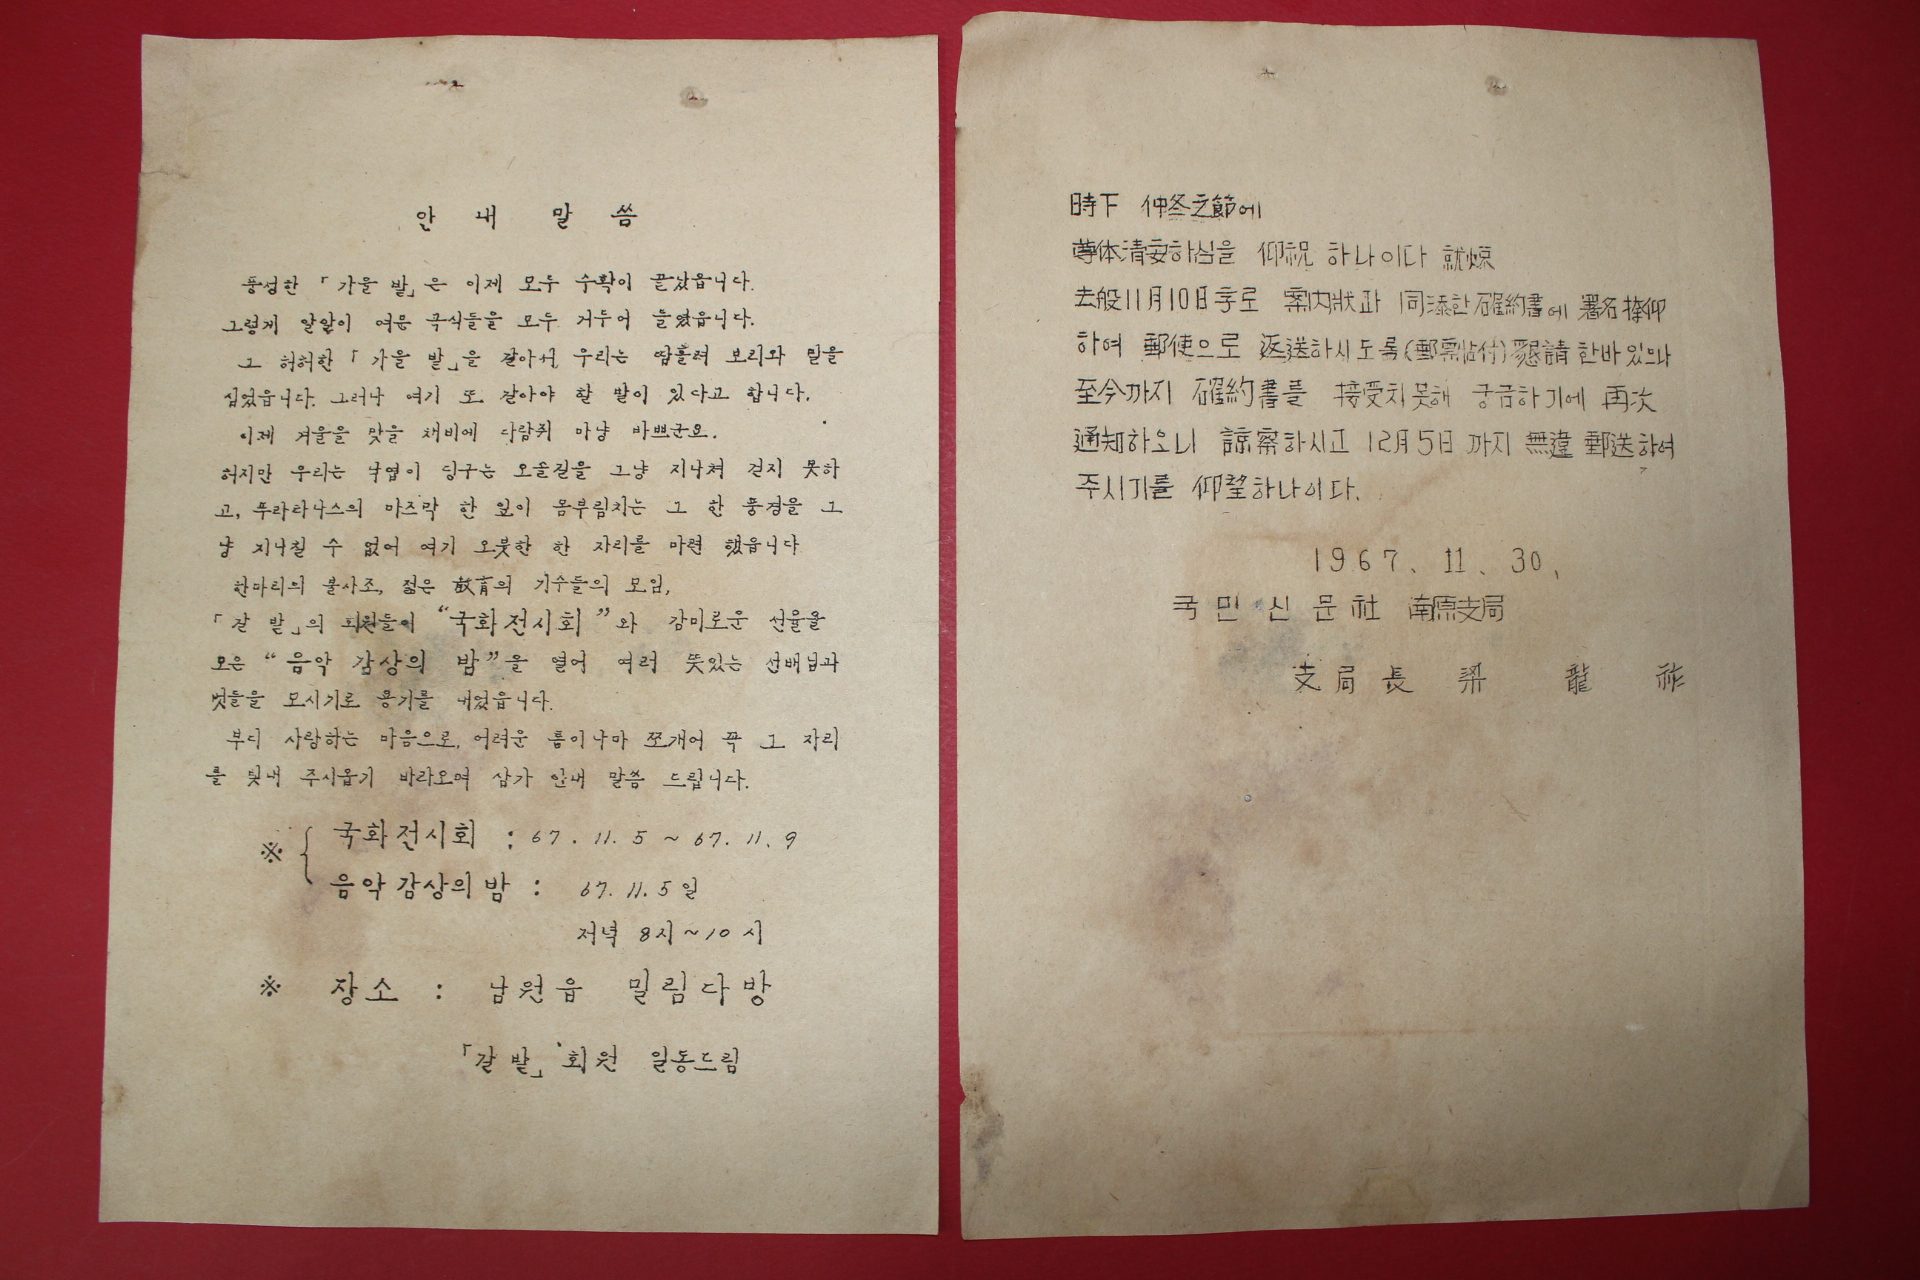 안 내 말 씀
풍성한 「가을 밭」은 이제 모두 수확이 끝났읍니다.
그렇게 알알이 여문 곡식들을 모두 거두어 들였읍니다.
그 허허한 「가을 밭」을 갈아서 우리는 땀흘려 보리와 밀을
심었읍니다. 그러나 여기 또 갈아야 할 밭이 있다고 합니다.
이제 겨울을 맞을 채비에 다람쥐 마냥 바쁘군요.
허지만 우리는 낙엽이 딩구는 오솔길을 그냥 지나쳐 걷지 못하
고, 푸라타나스의 마즈막 한 잎이 몸부림치는 그 한 풍경을 그
냥 지나칠 수 없어 여기 오붓한 한 자리를 마련 했읍니다
한마리의 불사조, 젊은 敎育의 기수들의 모임,
「갈 밭」의 회원들이 “국화전시회”와 감미로운 선율을
모은 “음악 감상의 밤”을 열어 여러 뜻있는 선배님과
벗들을 모시기로 용기를 내었읍니다.
부디 사랑하는 마음으로, 어려운 틈이나마 쪼개어 꼭 그 자리
를 빛내 주시옵기 바라오며 삼가 안내 말씀 드립니다.
※ { 국화전시회 : 67. 11. 5 ~ 67. 11. 9
음악감상의 밤 : 67. 11. 5일
저녁 8시~10시
※ 장소 : 남원읍 밀림다방
「갈 밭」 회원 일동드림
時下 仲冬之節에
尊体淸安하심을 仰祝 하나이다 就煩
去般 11月10日字로 案內狀과 同添한 確約書에 署名 捺印
하여 郵便으로 返送하시도록 (郵票帖付) 懇請한바있으나
至今까지 確約書를 接受치못해 궁금하기에 再次
通知하오니 諒察하시고 12月5日 까지 無違 郵送하여
주시기를 仰望하나이다.
1967. 11. 30,
국민신문社 南原支局
支局長 梁 龍 祚